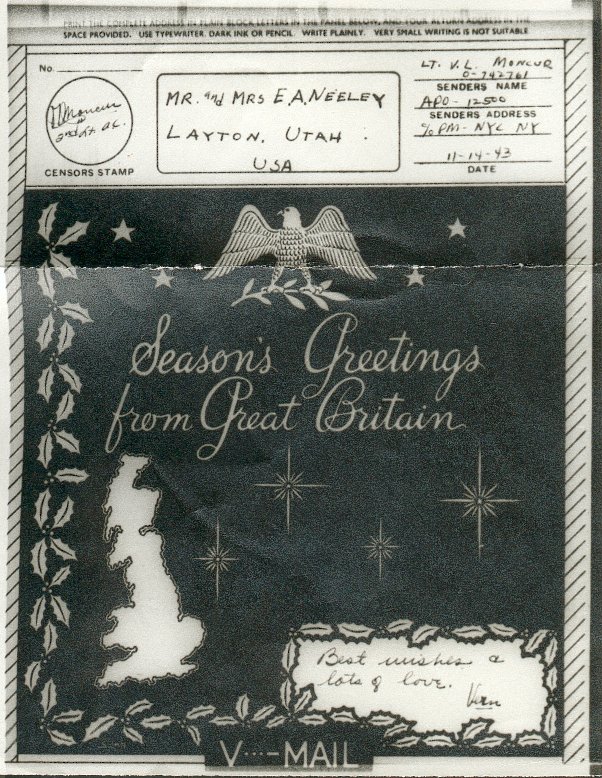 PRINT THE COMPLETE ADDRESS IN PLAIN BLOCK LETTERS IN THE PANEL BELOW, AND YOUR RETURN ADDRESS IN THE
SPACE PROVIDED. USE TYPEWRITER, DARK INK OR PENCIL. WRITE PLAINLY. VERY SMALL WRITING IS NOT SUITABLE
No.
VLMoncur
2nd Lt. A.C.
CENSORS STAMP
MR. and MRS E.A. NEELEY
LAYTON, UTAH
USA
LT. V.L. MONCUR
O-742761
SENDERS NAME
APO-12500
SENDERS ADDRESS
c/o PM-NYC NY
11-14-43
DATE
Season's Greetings
from Great Britain
Best wishes &
lots of love.
Vern
V···—MAIL